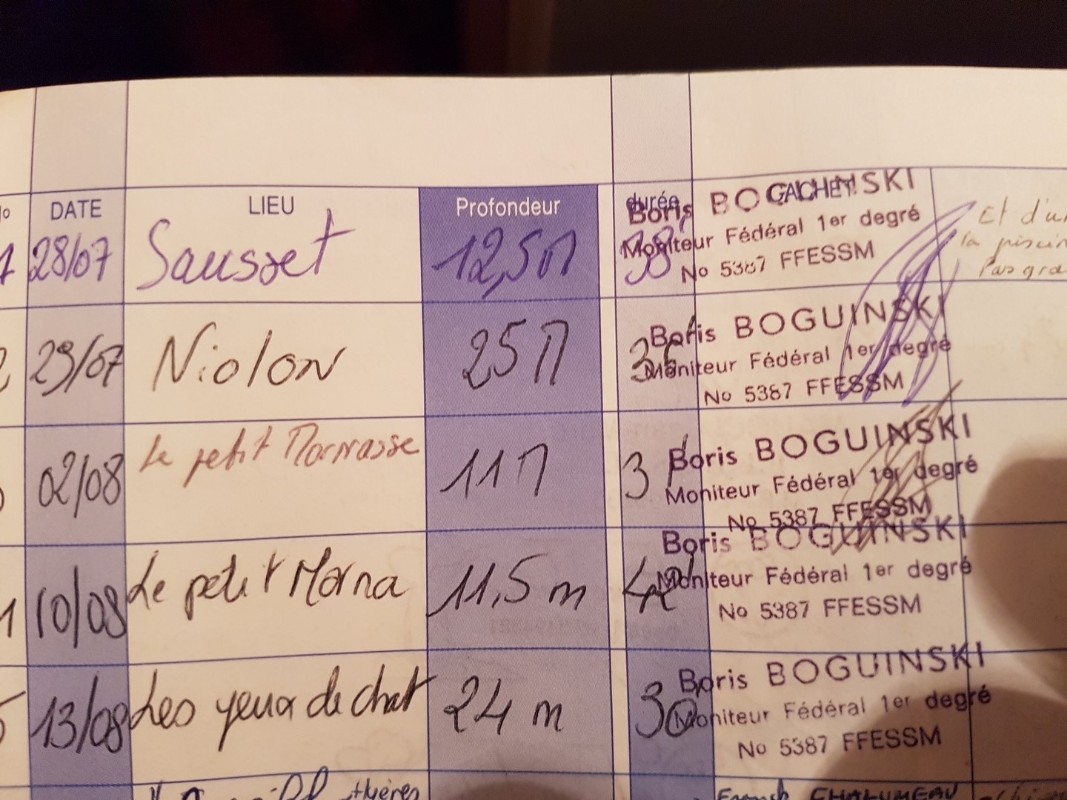 DATE LIEU Profondeur durée CACHET
28/07 Sausset 12,5 M 38'
Boris BOGUINSKI
Moniteur Fédéral 1er degré
No 5387 FFESSM
Et d'un
la piscin
Pas gra
29/07 Niolon 25 M
Boris BOGUINSKI
Moniteur Fédéral 1er degré
No 5387 FFESSM
02/08 Le petit Mornasse 11 M 3
Boris BOGUINSKI
Moniteur Fédéral 1er degré
No 5387 FFESSM
10/08 Le petit Morna 11,5 m
Boris BOGUINSKI
Moniteur Fédéral 1er degré
No 5387 FFESSM
13/08 Les yeux de chat 24 m 30
Boris BOGUINSKI
Moniteur Fédéral 1er degré
No 5387 FFESSM